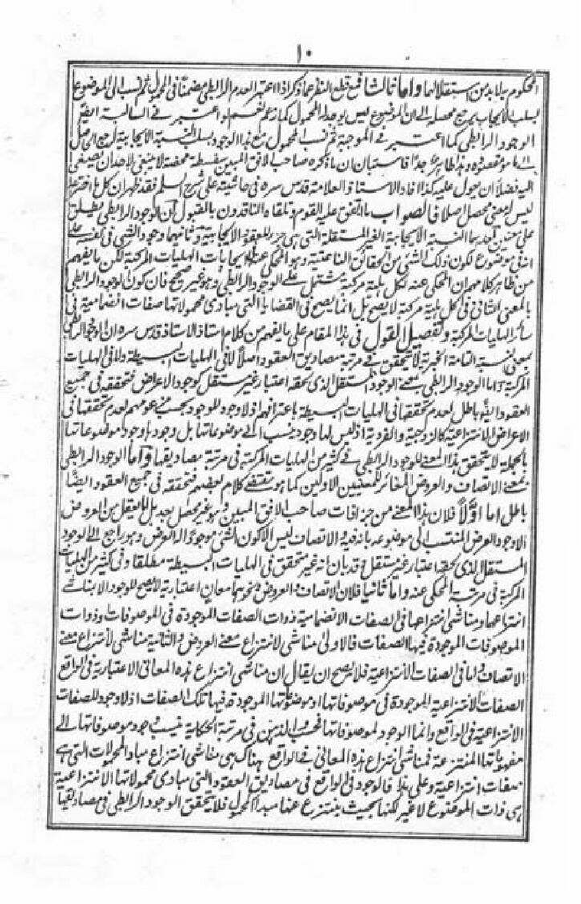 ١٠
المحكوم به لا بد من مستقلاليها واما ثالثا فمع قطع النظر عما ذكر اذا اعتبر العدم الرابطي مضمنا في المحمول ثم نسب الى الموضوع
بسلب الايجاب يرجع محصله الى ان الموضوع ليس يوجد له المحمول كما زعم اعتبر في السالبة ايضا
الوجود الرابطي كما اعتبر في الموجبة ثم نسب المحمول مع هذا الوجود بسلب النسبة الايجابية ارجع الحاصل
الى ما هو مقصوده وهذا ظاهر جدا فاستبان ان ما ذكره صاحب الافق المبين سفسطة محضة لا ينبغي لاحد ان يصغى
اليه فضلا ان يعول عليه كذا افاد الاستاذ العلامة قدس سره في حاشيته على شرح السلم فقد ظهر ان كل ما اخترعه
ليس له معنى محصل اصلا فالصواب ما اتفق عليه القوم وتلقاه الناقدون بالقبول ان الوجود الرابطي يطلق
على معنيين احدهما النسبة الايجابية الغير المستقلة التي هي جزء للعقود الايجابية وثانيهما وجود الشئ في نفسه على
انه في موضوع لكون ذلك الشئ من الحقائق الناعتية وهو المحكي عنه لايجابات الهليات المركبة لكن ما يفهم
من ظاهر كلامهم ان المحكي عنه لكل هلية مركبة مشتمل على الوجود الرابطي وهو غير صحيح فان كون الوجود الرابطي
بالمعنى الثاني في كل هلية مركبة لا يصح بل انما يصح في القضايا التي مبادى محمولاتها صفات انضمامية في
سائر الهليات المركبة وتفصيل القول في هذا المقام على ما يفهم من كلام استاذ الاستاذ قدس سره ان الوجود الرابطي
بمعنى النسبة التامة الخبرية لا يتحقق في مرتبة مصاديق العقود اصلا لا في الهليات البسيطة ولا في الهليات
المركبة واما الوجود الرابطي بمعنى الوجود المستقل الذي لحقه اعتبار غير مستقل كوجود الاعراض فتحققه في جميع
العقود ايضا باطل لعدم تحققه في الهليات البسيطة باعترافهم اذ لا وجود للوجود بحسب عمومه لعدم تحققها في
الاعراض الانتزاعية كالزوجية والفردية اذ ليس لها وجود ينسب الى موضوعاتها بل وجودها وجود موضوعاتها
بالجملة لا يتحقق هذا المعنى للوجود الرابطي في كثير من الهليات المركبة في مرتبة مصاديقها واما الوجود الرابطي
بمعنى الاتصاف والعروض المغائر للمعنيين الاولين كما هو مقتضى كلام بعضهم فتحققه في جميع العقود ايضا
باطل اما اولا فلان هذا المعنى من جزافات صاحب الافق المبين وهو غير محصل بعد بل لا يعقل من العروض
الا وجود العرض المنتسب الى موضوعه بانه فيه ولا من الاتصاف ليس الا كون الشئ موجودا له العرض وهو راجع الى الوجود
المستقل الذي لحقه اعتبار غير مستقل قد بان انه غير متحقق في الهليات البسيطة مطلقا وفي كثير من الهليات
المركبة في مرتبة المحكي عنه واما ثانيا فلان الاتصاف العروض ونحوهما معان اعتبارية لا يصح للوجود الا بمناشى
انتزاعها ومناشى انتزاعها في الصفات الانضمامية ذوات الصفات الموجودة في الموصوفات وذوات
الموصوفات الموجودة فيها الصفات فالاولى مناشى لانتزاع معنى العروض والثانية مناشى لانتزاع معنى
الاتصاف واما في الصفات الانتزاعية فلا يصح ان يقال ان مناشى انتزاع هذه المعاني الاعتبارية في الواقع
الصفات الانتزاعية الموجودة في موصوفاتها او موضوعاتها الموجودة فيها تلك الصفات اذ لا وجود للصفات
الانتزاعية في الواقع وانما الوجود لموصوفاتها فحسب الذهن في مرتبة الحكاية ينسب وجود موصوفاتها الى
مفهوماتها المنتزعة فمناشى انتزاع هذه المعاني في الواقع هناك هي مناشى انتزاع مباد المحمولات التي هي
صفات انتزاعية وعلى هذا فالوجود في الواقع في مصاديق العقود التي مبادى محمولاتها الانتزاعية
هى ذوات الموضوع لا غير لكنها بحيث ينتزع عنها مبدأ المحمول فلا يتحقق الوجود الرابطي في مصاديقها